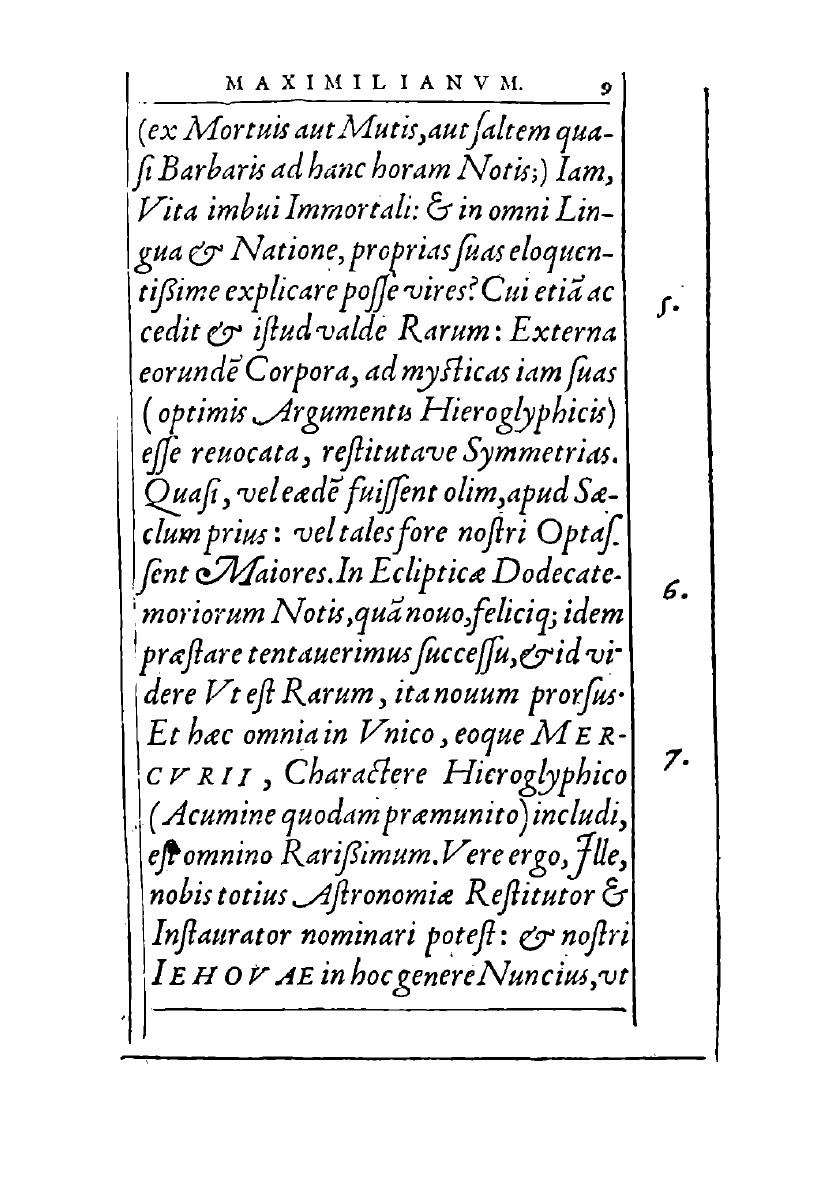 MAXIMILIANVM. 9
(ex Mortuis aut Mutis, aut ſaltem qua-
ſi Barbaris ad hanc horam Notis;) Iam,
Vita imbui Immortali: & in omni Lin-
gua & Natione, proprias ſuas eloquen-
tißime explicare poſſe vires? Cui etiā ac
5.
cedit & iſtud valde Rarum: Externa
eorundē Corpora, ad myſticas iam ſuas
(optimis Argumentis Hieroglyphicis)
eſſe reuocata, reſtitutave Symmetrias.
Quaſi, vel eædē fuiſſent olim, apud Sæ-
clum prius: vel tales fore noſtri Optaſ-
ſent Maiores. In Eclipticæ Dodecate-
6.
moriorum Notis, quā nouo, feliciq; idem
præſtare tentauerimus ſucceſſu, & id vi-
dere Vt eſt Rarum, ita nouum prorſus.
Et hæc omnia in Vnico, eoque MER-
7.
CVRII, Charactere Hieroglyphico
(Acumine quodam præmunito) includi,
eſt omnino Rarißimum. Vere ergo, Ille,
nobis totius Aſtronomiæ Reſtitutor &
Inſtaurator nominari poteſt: & noſtri
IEHOVAE in hoc genere Nuncius, vt